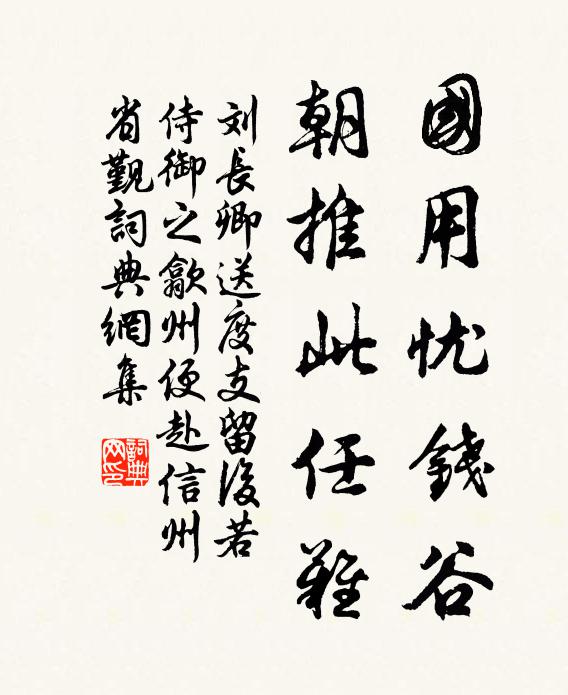 國用忧錢谷
朝推此任難
刘長卿送度支留後若
侍御之歙州便赴信州
省觐詞典網集
詞典网印